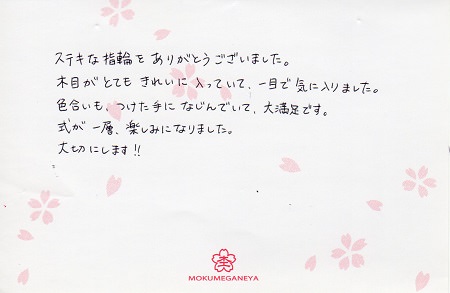 ステキな指輪をありがとうございました。
木目がとてもきれいに入っていて、一目で気に入りました。
色合いも、つけた手になじんでいて、大満足です。
式が一層、楽しみになりました。
大切にします!!
MOKUMEGANEYA